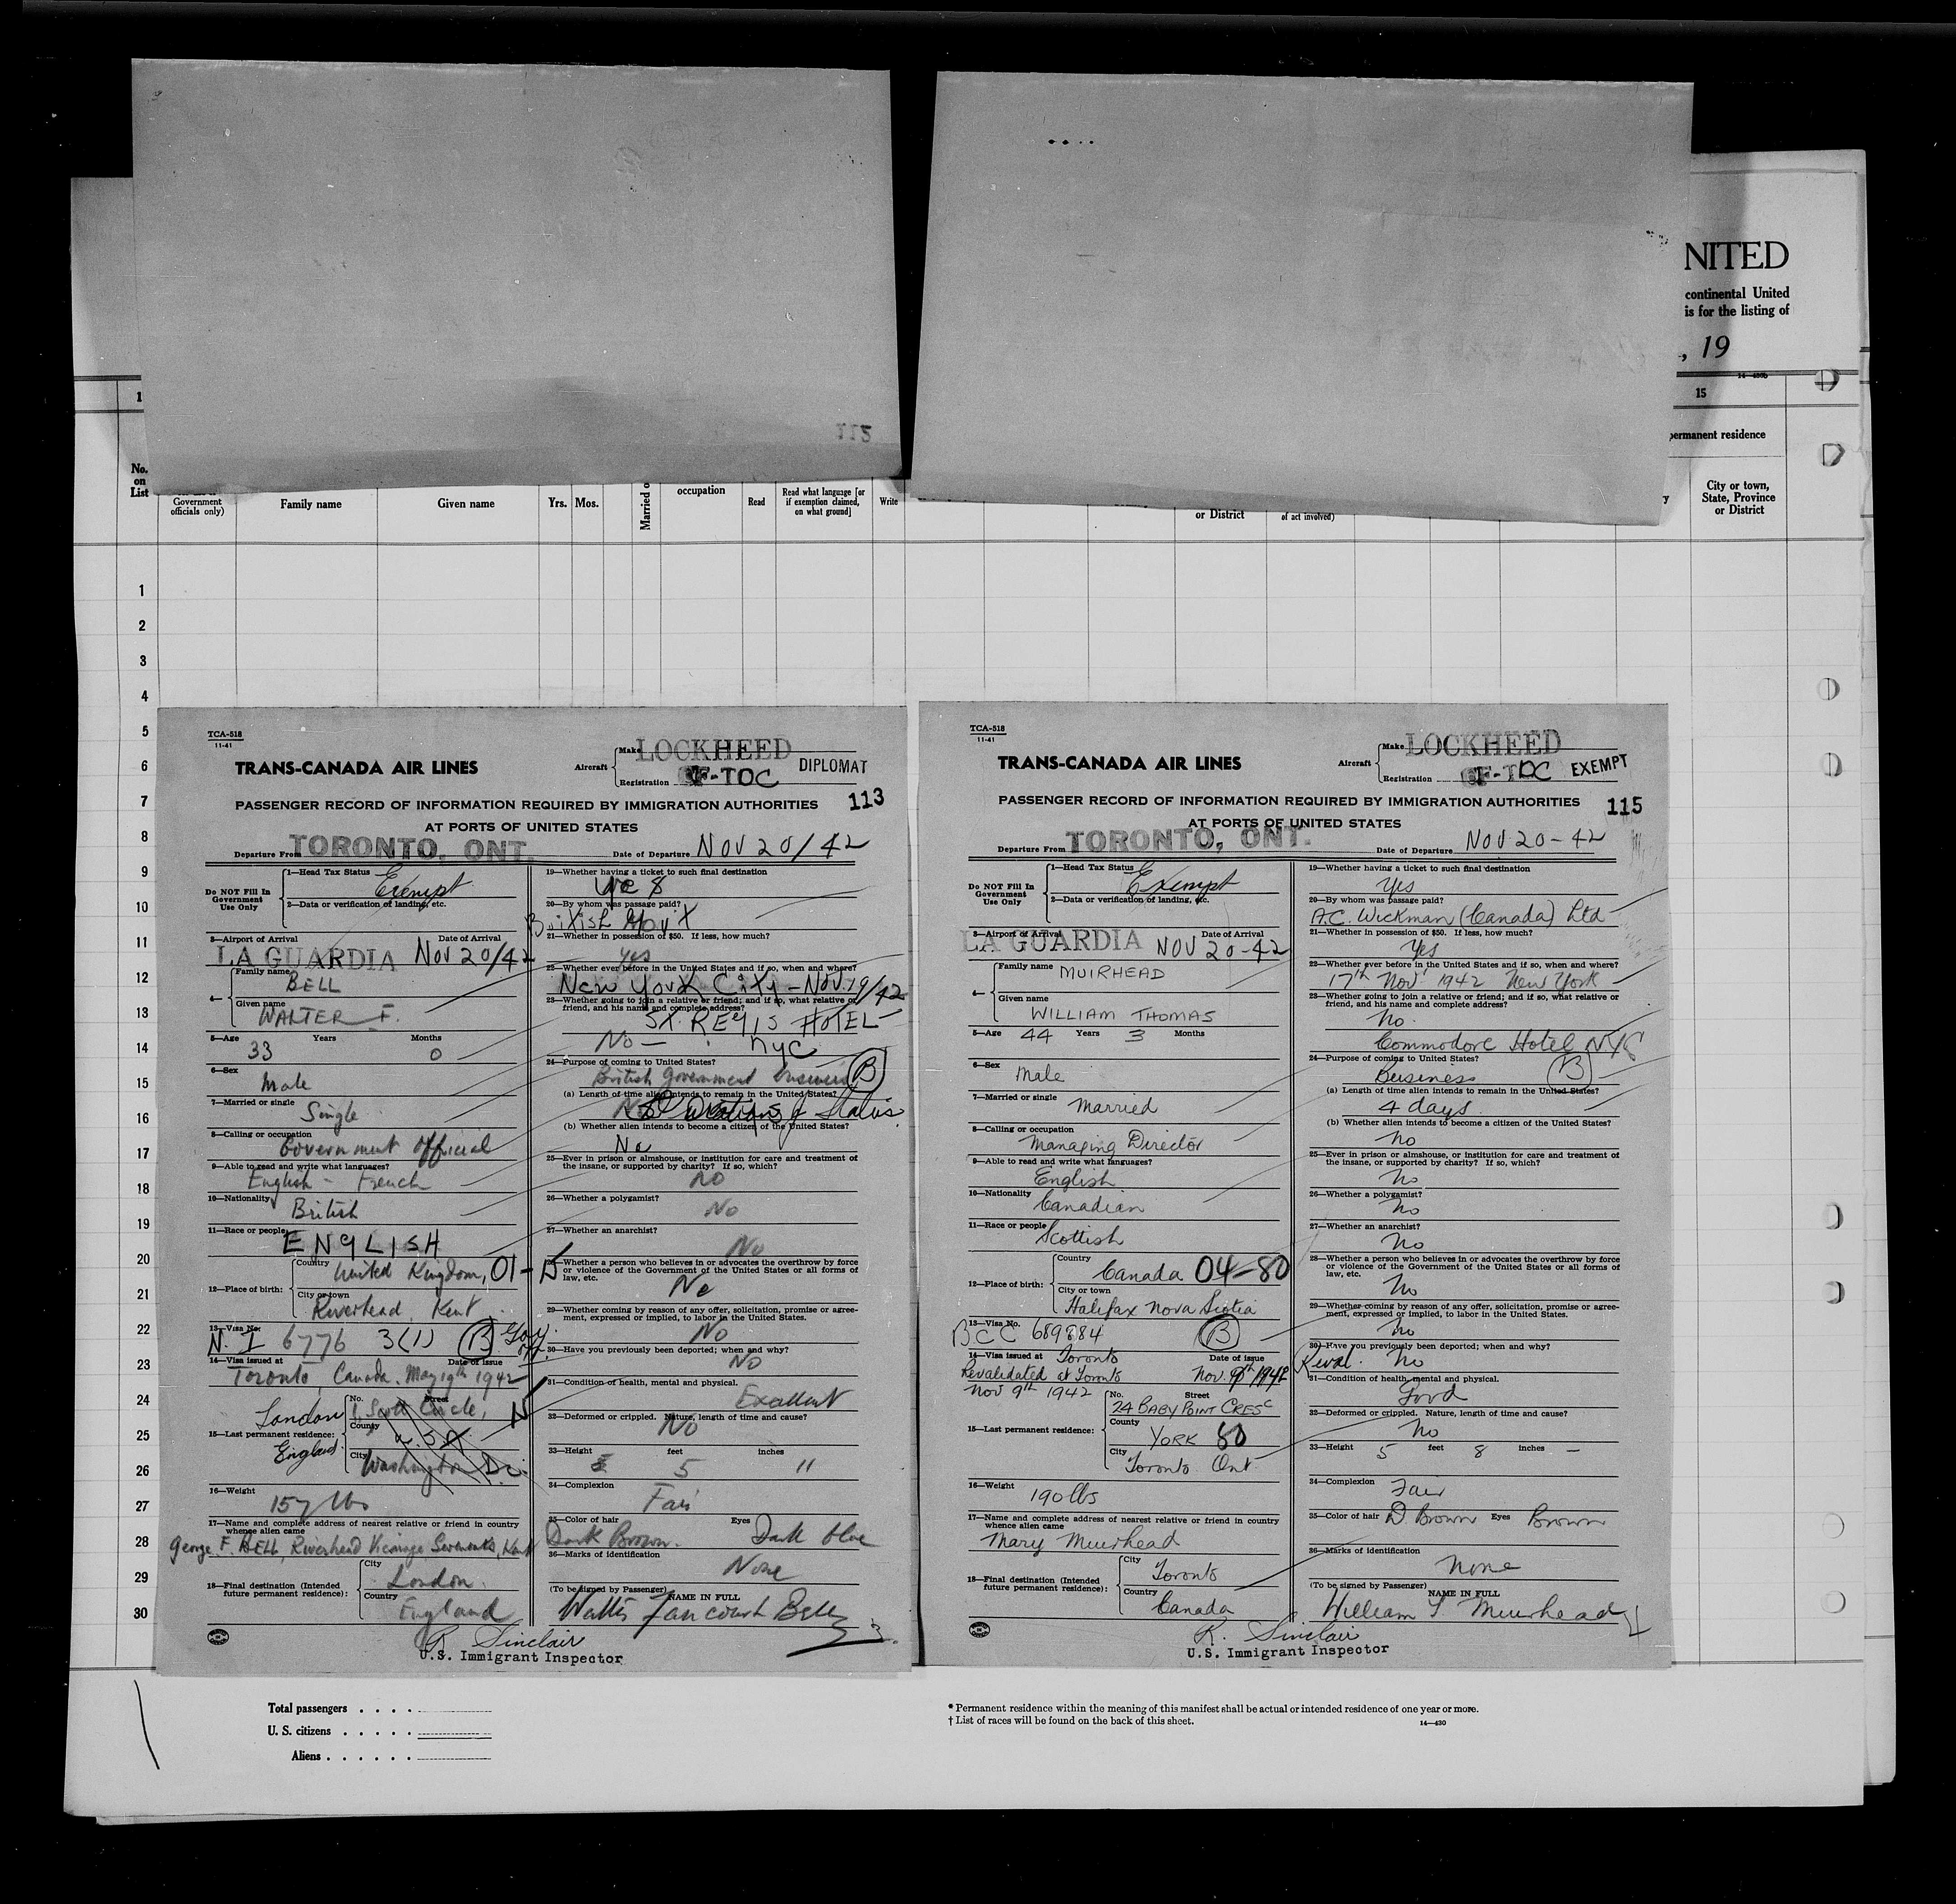 NITED
continental United
is for the listing of
, 19
14—430b
1
15
permanent residence
No.
on
List
Government
officials only)
Family name
Given name
Yrs. Mos.
Married o
occupation
Read
Read what language [or
if exemption claimed,
on what ground]
Write
or District
of act involved)
y
City or town,
State, Province
or District
112
1
2
3
4
5
6
7
8
9
10
11
12
13
14
15
16
17
18
19
20
21
22
23
24
25
26
27
28
29
30
TCA-518
11-41
TRANS-CANADA AIR LINES
Aircraft
Make LOCKHEED
Registration CF-TOC
DIPLOMAT
PASSENGER RECORD OF INFORMATION REQUIRED BY IMMIGRATION AUTHORITIES 113
AT PORTS OF UNITED STATES
Departure From TORONTO, ONT. Date of Departure NOV 20/42
Do NOT Fill In
Government
Use Only
1—Head Tax Status Exempt
2—Data or verification of landing, etc.
3—Airport of Arrival Date of Arrival
LA GUARDIA Nov 20/42
4— Family name BELL
Given name
WALTER F.
5—Age 33 Years Months 0
6—Sex
Male
7—Married or single
Single
8—Calling or occupation
Government Official
9—Able to read and write what languages?
English - French
10—Nationality
British
11—Race or people
ENGLISH
12—Place of birth:
Country United Kingdom, 01-
City or town
Riverhead, Kent
13—Visa No.
N. I 6776 3(1) B
14—Visa issued at Date of issue
Toronto, Canada. May 19th 1942
15—Last permanent residence:
London
England
No. Street
1, Scott Circle,
County
U.S.A
City
Washington D.C.
16—Weight
157 lbs
17—Name and complete address of nearest relative or friend in country
whence alien came
George F. BELL, Riverhead Vicarage Sevenoaks, Kent
18—Final destination (Intended
future permanent residence):
City
London
Country
England
19—Whether having a ticket to such final destination
20—By whom was passage paid?
British Govt
21—Whether in possession of $50. If less, how much?
yes
22—Whether ever before in the United States and if so, when and where?
New York City - Nov. 19/42
23—Whether going to join a relative or friend; and if so, what relative or
friend, and his name and complete address?
ST. REGIS HOTEL
No — NYC
24—Purpose of coming to United States?
British Government business B
(a) Length of time alien intends to remain in the United States?
Duration of Status
(b) Whether alien intends to become a citizen of the United States?
No
25—Ever in prison or almshouse, or institution for care and treatment of
the insane, or supported by charity? If so, which?
No
26—Whether a polygamist?
No
27—Whether an anarchist?
No
28—Whether a person who believes in or advocates the overthrow by force
or violence of the Government of the United States or all forms of
law, etc.
No
29—Whether coming by reason of any offer, solicitation, promise or agree-
ment, expressed or implied, to labor in the United States.
No
30—Have you previously been deported; when and why?
No
31—Condition of health, mental and physical.
Excellent
32—Deformed or crippled. Nature, length of time and cause?
No
33—Height feet inches
5 11
34—Complexion
Fair
35—Color of hair Eyes
Dark Brown. Dark blue
36—Marks of identification
None
(To be signed by Passenger) NAME IN FULL
Walter Fancourt Bell
R. Sinclair
U.S. Immigrant Inspector
TCA-518
11-41
TRANS-CANADA AIR LINES
Aircraft
Make LOCKHEED
Registration CF-TOC
EXEMPT
PASSENGER RECORD OF INFORMATION REQUIRED BY IMMIGRATION AUTHORITIES 115
AT PORTS OF UNITED STATES
Departure From TORONTO, ONT. Date of Departure NOV 20-42
Do NOT Fill In
Government
Use Only
1—Head Tax Status Exempt
2—Data or verification of landing, etc.
3—Airport of Arrival Date of Arrival
LA GUARDIA NOV 20-42
4— Family name MUIRHEAD
Given name
WILLIAM THOMAS
5—Age 44 Years 3 Months
6—Sex
Male
7—Married or single
Married
8—Calling or occupation
Managing Director
9—Able to read and write what languages?
English
10—Nationality
Canadian
11—Race or people
Scottish
12—Place of birth:
Country
Canada 04-80
City or town
Halifax Nova Scotia
13—Visa No.
BCC 689884 B
14—Visa issued at Toronto Date of issue
Revalidated at Toronto Nov. 9th 1942
Nov 9th 1942
15—Last permanent residence:
No. Street
24 BABY POINT CRESC
County
YORK 80
City
Toronto Ont
16—Weight
190 lbs
17—Name and complete address of nearest relative or friend in country
whence alien came
Mary Muirhead
18—Final destination (Intended
future permanent residence):
City
Toronto
Country
Canada
19—Whether having a ticket to such final destination
Yes
20—By whom was passage paid?
A.C. Wickman (Canada) Ltd
21—Whether in possession of $50. If less, how much?
Yes
22—Whether ever before in the United States and if so, when and where?
17th Nov 1942 New York
23—Whether going to join a relative or friend; and if so, what relative or
friend, and his name and complete address?
No.
Commodore Hotel NYC
24—Purpose of coming to United States?
Business B
(a) Length of time alien intends to remain in the United States?
4 days
(b) Whether alien intends to become a citizen of the United States?
No
25—Ever in prison or almshouse, or institution for care and treatment of
the insane, or supported by charity? If so, which?
No
26—Whether a polygamist?
No
27—Whether an anarchist?
No
28—Whether a person who believes in or advocates the overthrow by force
or violence of the Government of the United States or all forms of
law, etc.
No
29—Whether coming by reason of any offer, solicitation, promise or agree-
ment, expressed or implied, to labor in the United States.
No
30—Have you previously been deported; when and why?
Reval. No
31—Condition of health, mental and physical.
Good
32—Deformed or crippled. Nature, length of time and cause?
No
33—Height 5 feet 8 inches —
34—Complexion
Fair
35—Color of hair D. Brown Eyes Brown
36—Marks of identification
None
(To be signed by Passenger) NAME IN FULL
William T Muirhead
R. Sinclair
U.S. Immigrant Inspector
Total passengers . . . .
U. S. citizens . . . . .
Aliens . . . . . .
* Permanent residence within the meaning of this manifest shall be actual or intended residence of one year or more.
† List of races will be found on the back of this sheet.
14—430